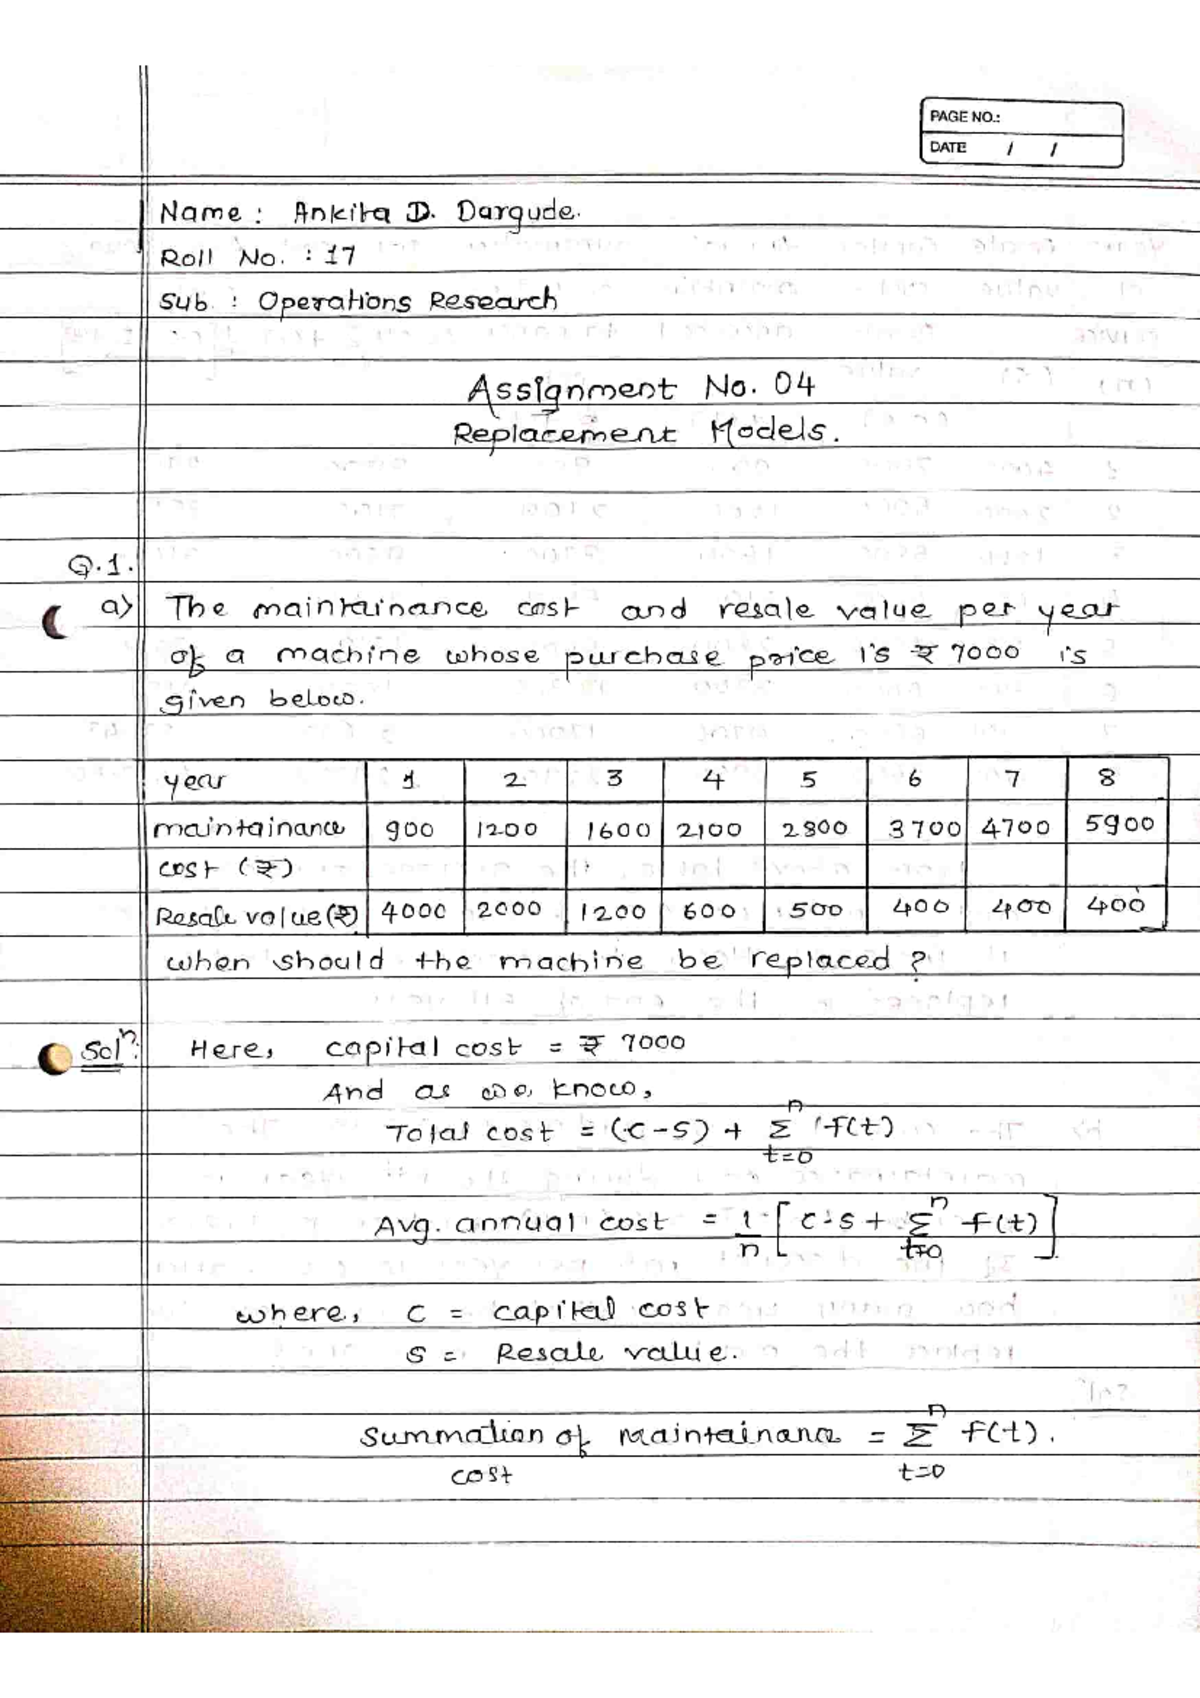 PAGE NO.:
DATE / /
Name : Ankita D. Dargude.
Roll No. : 17
Sub. : Operations Research
Assignment No. 04
Replacement Models.
Q.1.
a) The maintainance cost and resale value per year
of a machine whose purchase price is ₹ 7000 is
given below.
year 1 2 3 4 5 6 7 8
maintainance 900 1200 1600 2100 2800 3700 4700 5900
cost (₹)
Resale value (₹) 4000 2000 1200 600 500 400 400 400
when should the machine be replaced ?
Solⁿ: Here, capital cost = ₹ 7000
And as we know,
n
Total cost = (C-S) + Σ f(t)
t=0
n
Avg. annual cost = 1/n [ C-S + Σ f(t) ]
t=0
where, C = capital cost
S = Resale value.
n
Summation of maintainance = Σ f(t).
cost t=0